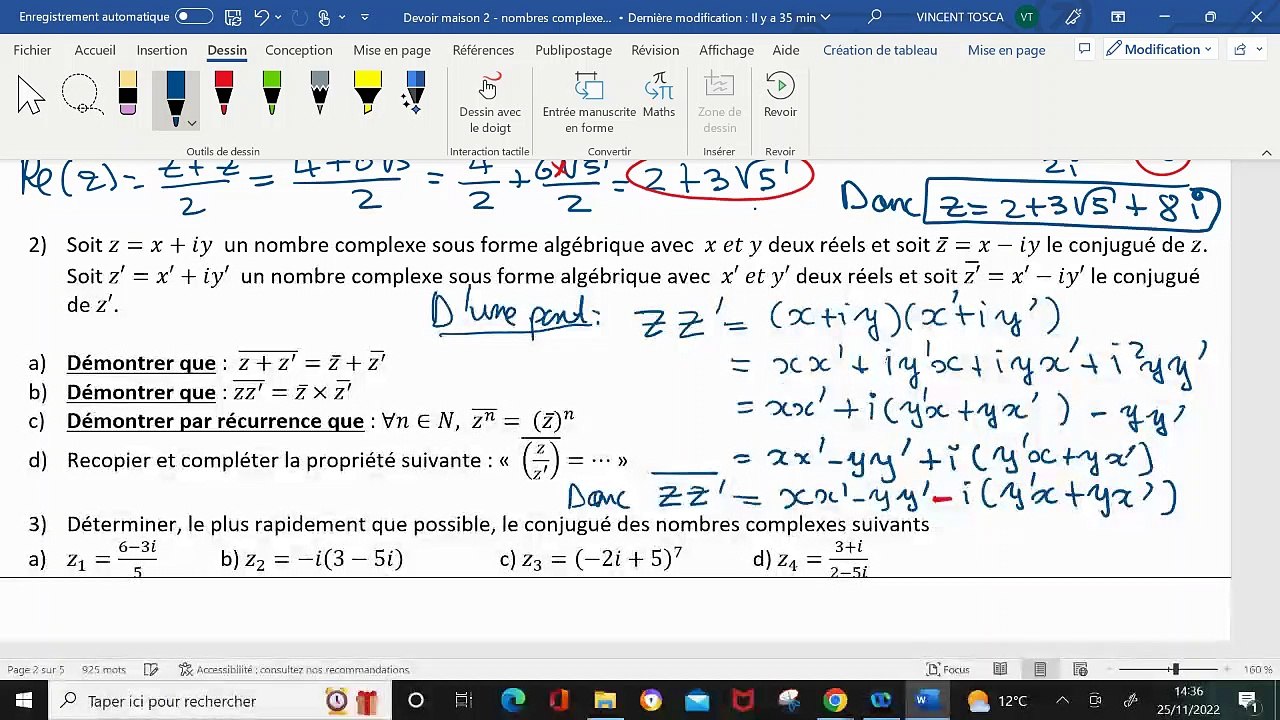 Enregistrement automatique
Devoir maison 2 - nombres complexe... • Dernière modification : Il y a 35 min
VINCENT TOSCA VT
Fichier Accueil Insertion Dessin Conception Mise en page Références Publipostage Révision Affichage Aide Création de tableau Mise en page Modification
Dessin avec le doigt
Entrée manuscrite en forme
Maths
Zone de dessin
Revoir
Outils de dessin Interaction tactile Convertir Insérer Revoir
Re(z) = \frac{z+\bar{z}}{2} = \frac{4+6\sqrt{5}}{2} = \frac{4}{2} + \frac{6×\sqrt{5}}{2} = 2+3\sqrt{5}
2i
Donc z = 2+3√5 + 8i
2) Soit z = x + iy un nombre complexe sous forme algébrique avec x et y deux réels et soit z̄ = x − iy le conjugué de z.
Soit z′ = x′ + iy′ un nombre complexe sous forme algébrique avec x′ et y′ deux réels et soit \overline{z′} = x′ − iy′ le conjugué
de z′.
D'une part : zz' = (x+iy)(x'+iy')
= xx' + iy'x + iyx' + i²yy'
= xx' + i(y'x+yx') - yy'
= xx'-yy' + i(y'x+yx')
Donc \overline{zz'} = xx'-yy' - i(y'x+yx')
a) Démontrer que : \overline{z + z′} = z̄ + \overline{z′}
b) Démontrer que : \overline{zz′} = z̄ × \overline{z′}
c) Démontrer par récurrence que : ∀n ∈ N, \overline{z^n} = (z̄)^n
d) Recopier et compléter la propriété suivante : « \overline{(\frac{z}{z′})} = ⋯ »
3) Déterminer, le plus rapidement que possible, le conjugué des nombres complexes suivants
a) z₁ = \frac{6−3i}{5} b) z₂ = −i(3 − 5i) c) z₃ = (−2i + 5)⁷ d) z₄ = \frac{3+i}{2−5i}
Page 2 sur 5 925 mots Accessibilité : consultez nos recommandations Focus 160 %
Taper ici pour rechercher
12°C
14:36
25/11/2022